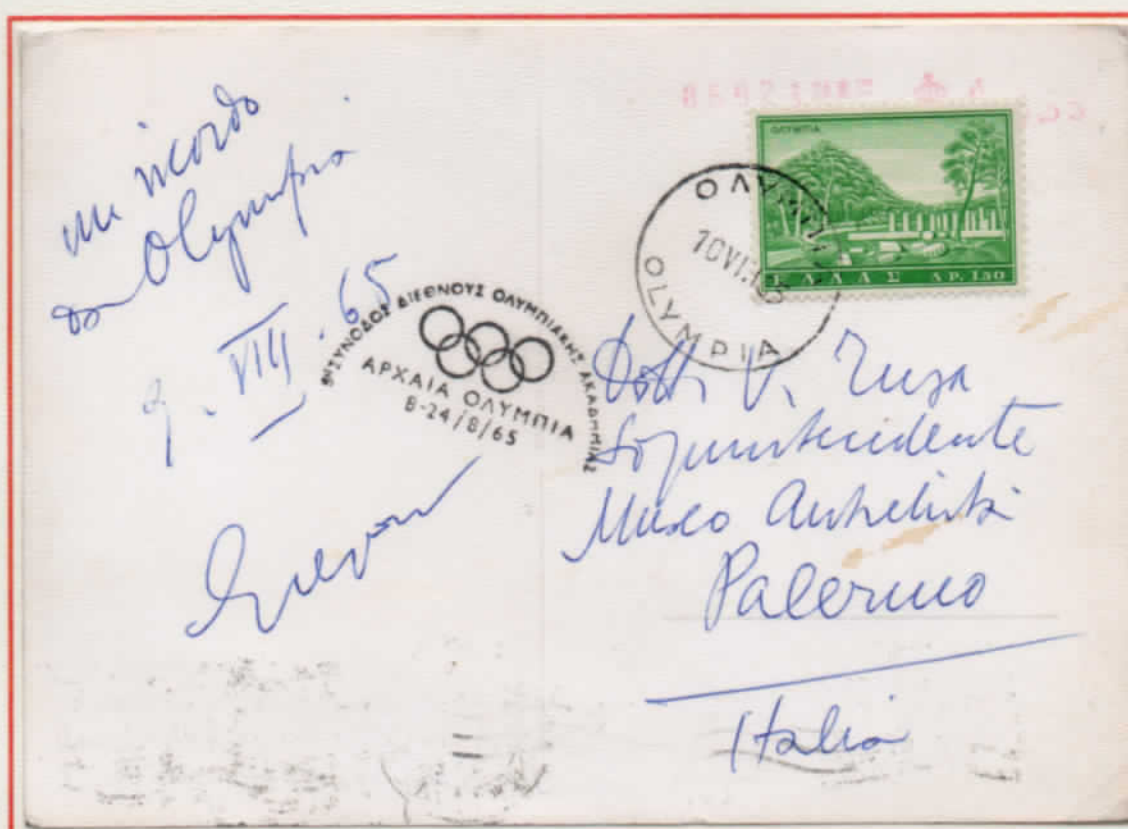 un ricordo
da Olympia
9. VIII. 65
ΣΥΝΟΔΟΣ ΔΙΕΘΝΟΥΣ ΟΛΥΜΠΙΑΚΗΣ ΑΚΑΔΗΜΙΑΣ
ΑΡΧΑΙΑ ΟΛΥΜΠΙΑ
8-24/8/65
ΟΛΥΜΠΙΑ
ΕΛΛΑΣ ΔΡ. 1.50
ΟΛΥΜΠΙΑ
OLYMPIA
Dott. V. Tusa
Soprintendente
Museo Antichità
Palermo
Italia